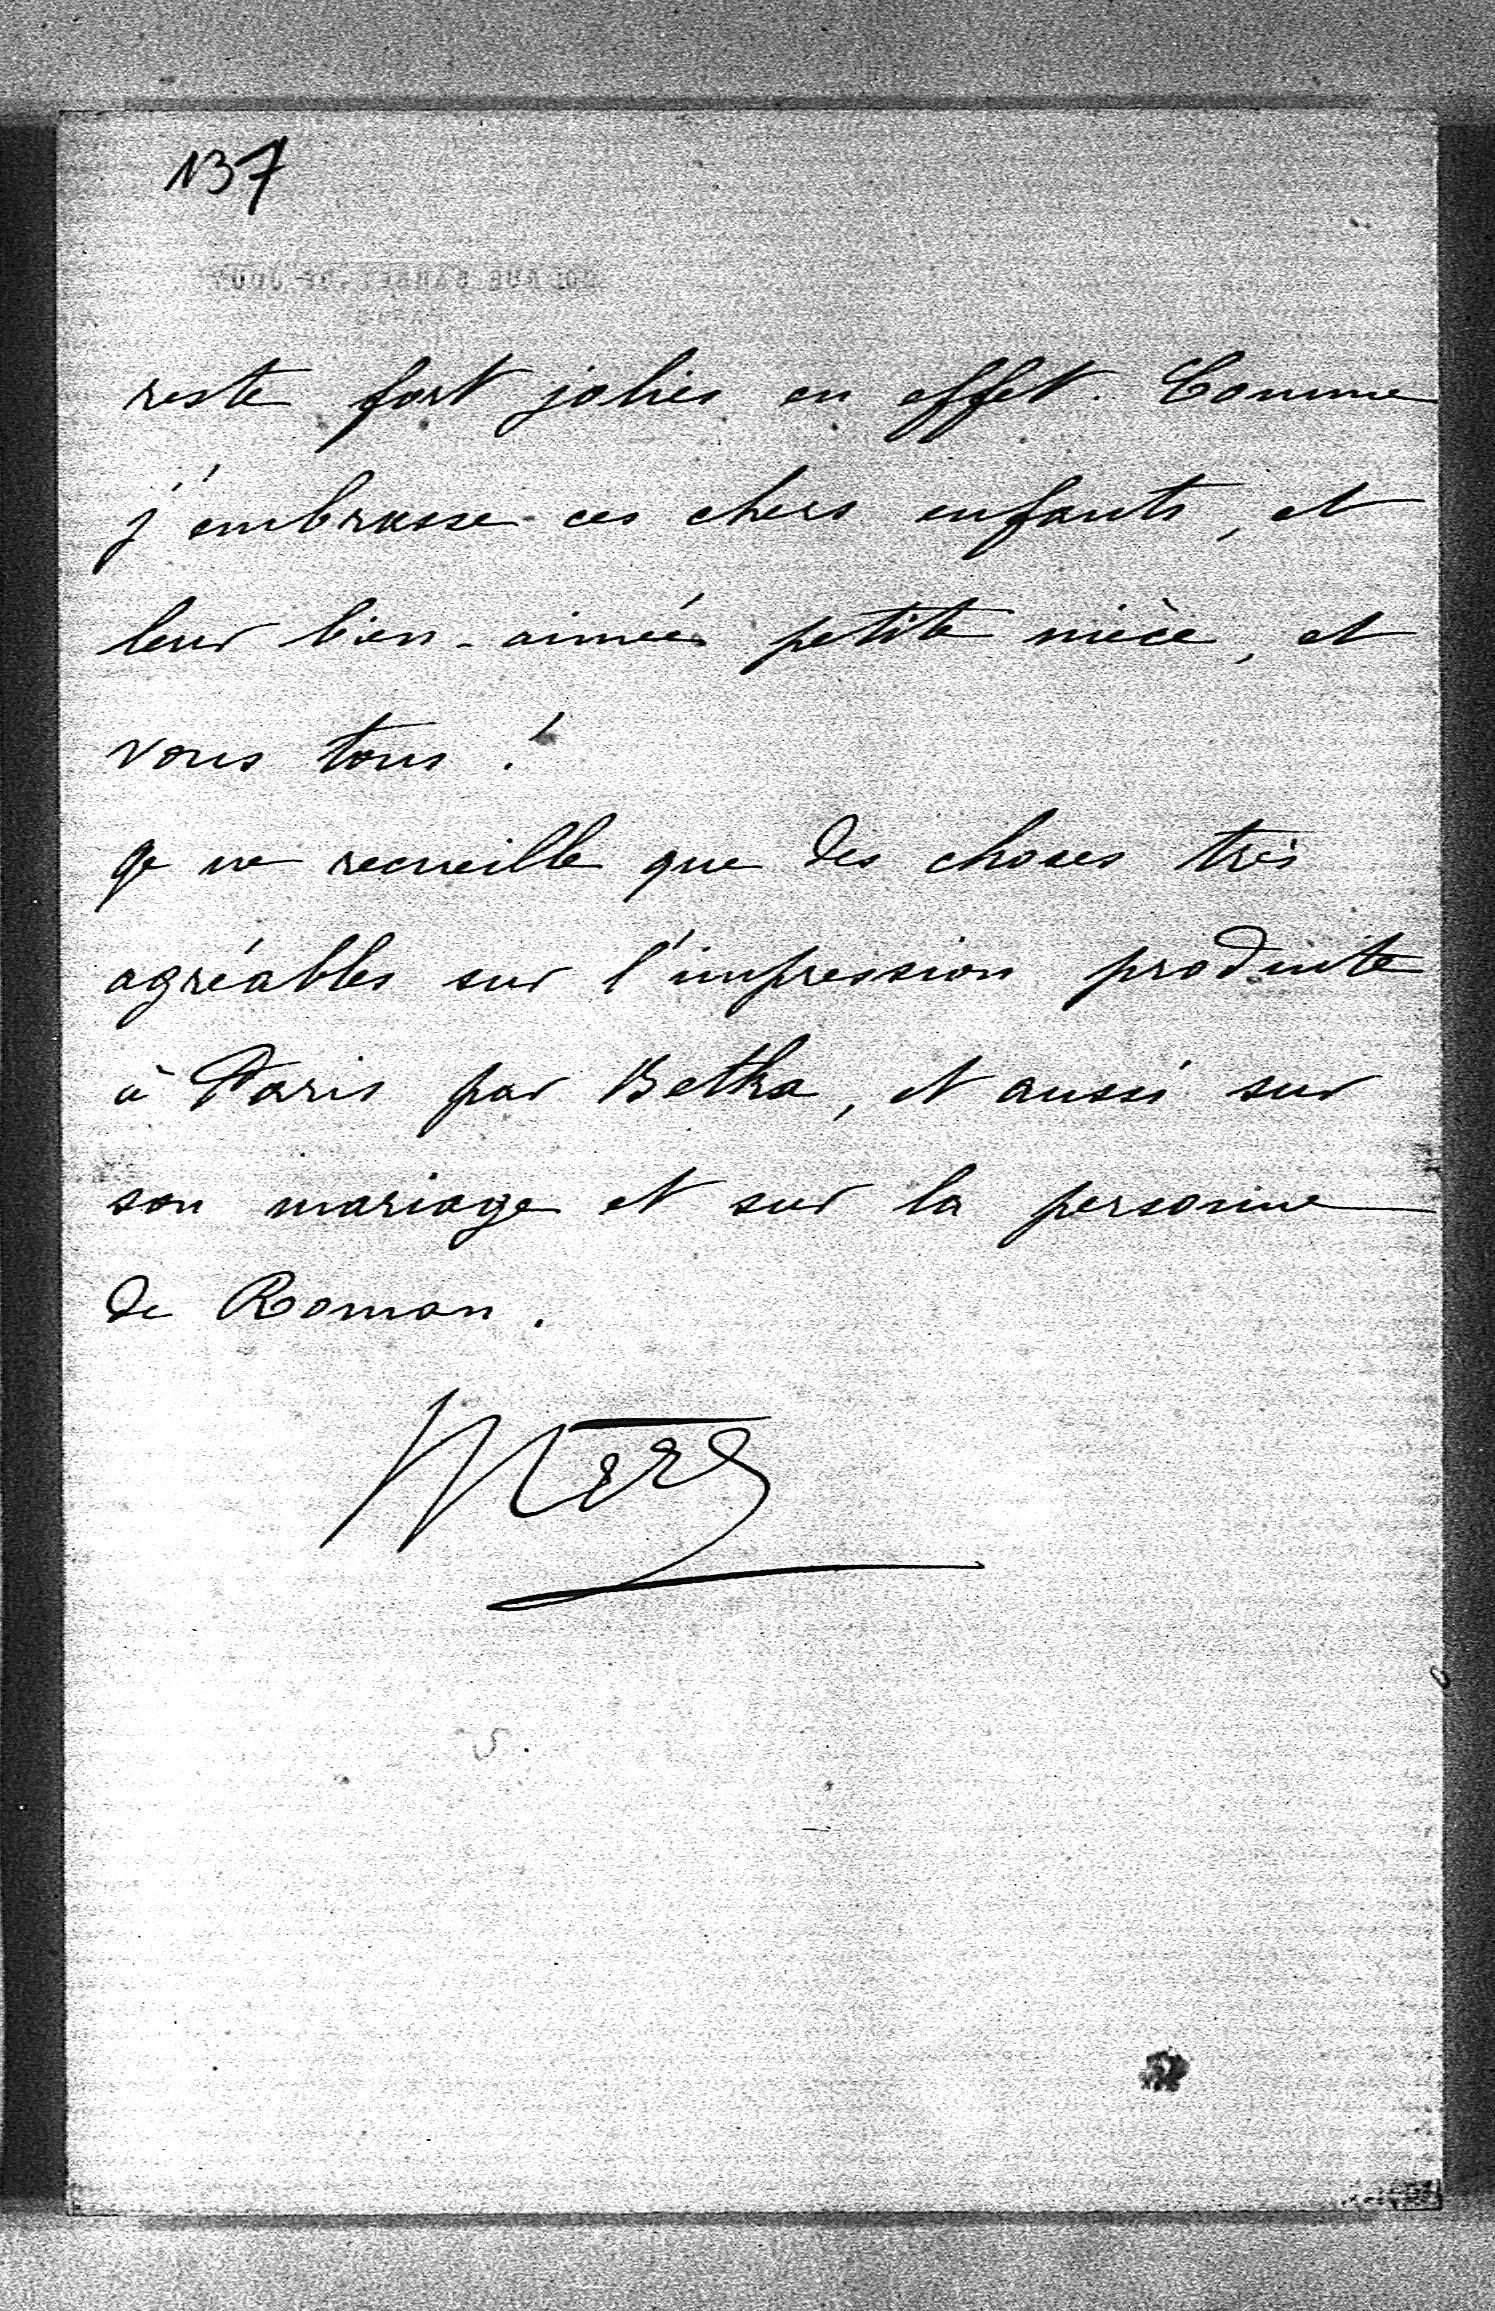 137
reste fort jolies en effet. Comme
j'embrasse ces chers enfants, et
leur bien-aimée petite nièce, et
vous tous !
Je ne recueille que des choses très
agréables sur l'impression produite
à Paris par Betka, et aussi sur
son mariage et sur la personne
de Roman.